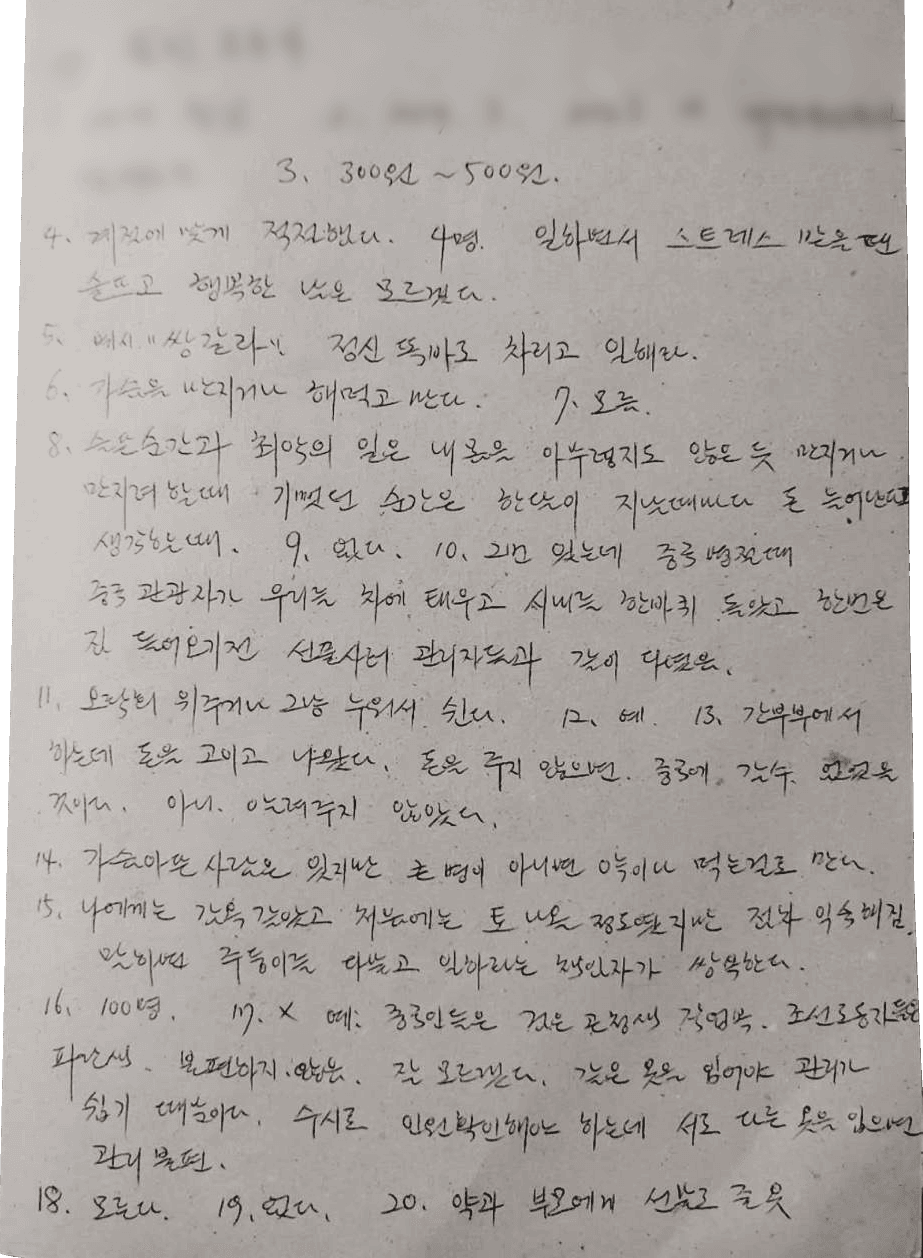 3. 300원 ~ 500원.
4. 계절에 맞게 적절했다. 4명. 일하면서 스트레스 받을 땐
슬프고 행복한 날은 모르겠다.
5. 예시 "쌍간나" 정신 똑바로 차리고 일해라.
6. 가슴을 만지거나 해먹고 만다. 7. 모름.
8. 슬픈순간과 최악의 일은 내 몸을 아무렇지도 않은 듯 만지거나
만지려 할때 기뻣던 순간은 한달이 지날때마다 돈 늘어난다
생각하는때. 9. 없다. 10. 2번 있는데 중국 명절때
중국 관광차가 우리를 차에 태우고 시내를 한바퀴 돌았고 한번은
집 들어오기전 선물사러 관리자들과 같이 다녔음.
11. 오락회 위주거나 그냥 누워서 쉰다. 12. 예. 13. 간부부에서
하는데 돈을 고이고 나왔다. 돈을 주지 않으면. 중국에 갈수 없었을
것이다. 아니. 알려주지 않았다.
14. 가슴아픈 사람은 있지만 큰 병이 아니면 먹는걸로 만다.
15. 나에게는 감옥 같았고 처음에는 토 나올 정도였지만 점차 익숙해짐.
말하면 주둥이를 다물고 일하라는 책임자가 쌍욕한다.
16. 100명. 17. X 예: 중국인들은 검은 곤청색 작업복. 조선로동자들은
파란색. 불편하지 않음. 잘 모르겠다. 같은 옷을 입어야 관리가
쉽기 때문이다. 수시로 인원확인해야 하는데 서로 다른 옷을 입으면
관리 불편.
18. 모른다. 19. 없다. 20. 약과 부모에게 선물로 줄 옷